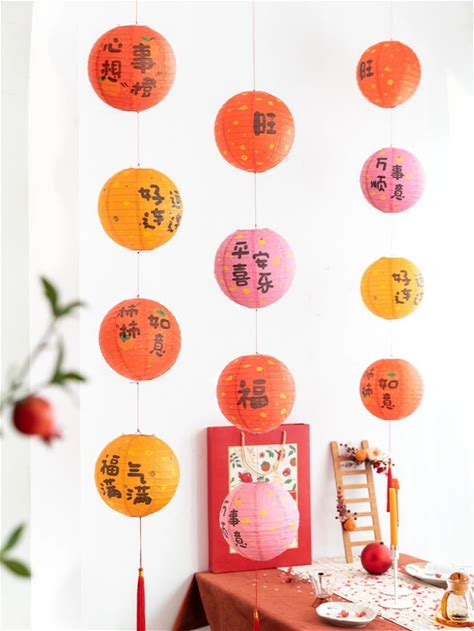 心想
“事橙”
好运
连连
柿柿
如意
福气
满满
旺
平安
喜乐
福
事
意
旺
万事
顺意
好运
连连
柿柿
如意